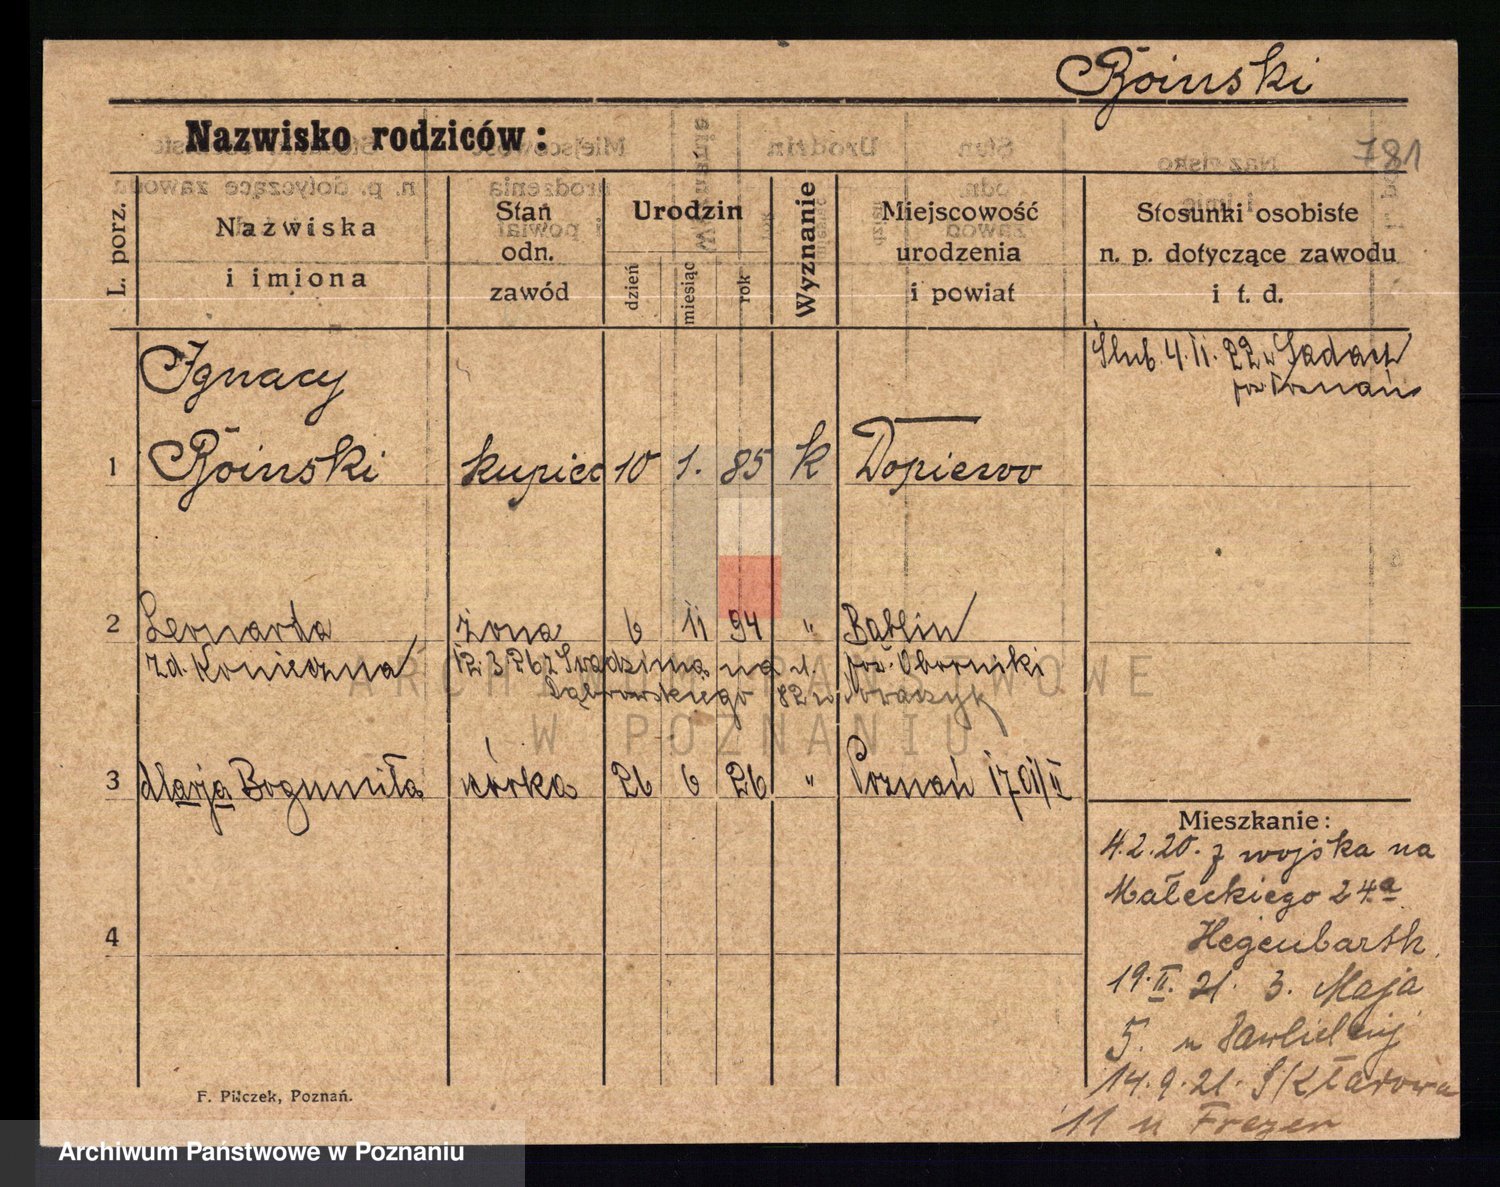 Boinski
Nazwisko rodziców:
781
L. porz.
Nazwiska
i imiona
Stan
odn.
zawód
Urodzin
dzień
miesiąc
rok
Wyznanie
Miejscowość
urodzenia
i powiat
Stosunki osobiste
n. p. dotyczące zawodu
i t. d.
Ignacy
Ślub. 4.II.22 w Sadach
pow. Poznań
1 Boinski kupiec 10 1. 85 k Dopiewo
2 Leonarda żona 6 11 94 " Bąblin
zd. Konieczna 12.3.26 z Swadzimia na ul. pow. Oborniki
Dąbrowskiego 82
3 Marja Bogumiła córka 26 6 26 " Poznań
Mieszkanie:
4.2.20. z wojska na
Małeckiego 24a
Hegenbarth.
19.II.21. 3. Maja
5. u
14.9.21.
11 u Frezer
4
F. Pilczek, Poznań.
ARCHIWUM PAŃSTWOWE
W POZNANIU
Archiwum Państwowe w Poznaniu